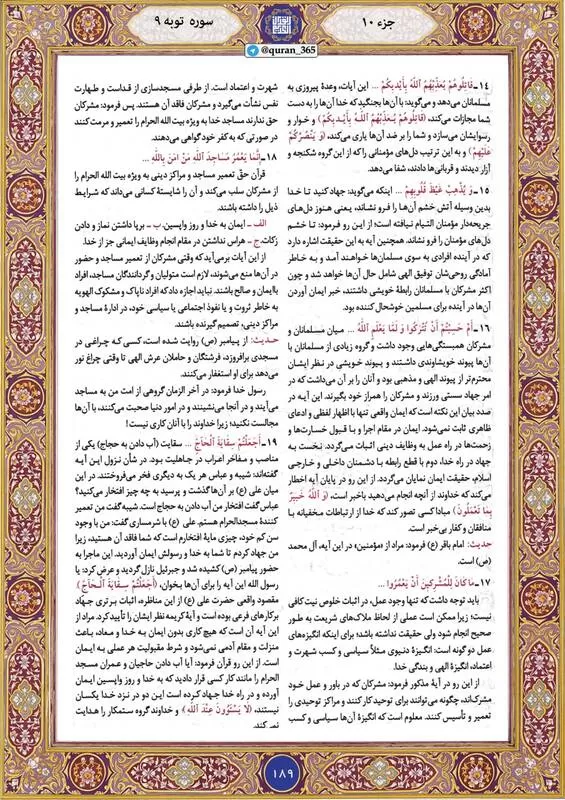 جزء ۱۰
سوره توبه ۹
@quran_365
۱۴ـ قَاتِلُوهُمْ يُعَذِّبْهُمُ اللَّهُ بِأَيْدِيكُمْ ... این آیات، وعدهٔ پیروزی به
مسلمانان می‌دهد و می‌گوید: با آن‌ها بجنگید که خدا آن‌ها را به دست
شما مجازات می‌کند، (قَاتِلُوهُمْ يُعَذِّبْهُمُ اللَّهُ بِأَيْدِيكُمْ) و خوار و
رسوایشان می‌سازد و شما را بر ضد آن‌ها یاری می‌کند، (وَ يَنْصُرْكُمْ
عَلَيْهِمْ) و به این ترتیب دل‌های مؤمنانی را که از این گروه شکنجه و
آزار دیدند و قربانی‌ها دادند، شفا می‌دهد.
۱۵ـ وَ يُذْهِبْ غَيْظَ قُلُوبِهِمْ ... اینکه می‌گوید: جهاد کنید تا خدا
بدین وسیله آتش خشم آن‌ها را فرو نشاند، یعنی هنوز دل‌های
جریحه‌دار مؤمنان التیام نیافته است؛ از این رو فرمود: تا خشم
دل‌های مؤمنان را فرو نشاند. همچنین آیه به این حقیقت اشاره دارد
که در آینده افرادی به سوی مسلمان‌ها خواهند آمد و به خاطر
آمادگی روحی‌شان توفیق الهی شامل حال آن‌ها خواهد شد و چون
اکثر مشرکان با مسلمانان رابطهٔ خویشی داشتند، خبر ایمان آوردن
آن‌ها در آینده برای مسلمین خوشحال کننده بود.
۱۶ـ أَمْ حَسِبْتُمْ أَنْ تُتْرَكُوا وَ لَمَّا يَعْلَمِ اللَّهُ ... میان مسلمانان و
مشرکان همبستگی‌هایی وجود داشت و گروه زیادی از مسلمانان با
آن‌ها پیوند خویشاوندی داشتند و پیوند خویشی در نظر ایشان
محترم‌تر از پیوند الهی و مذهبی بود و آنان را بر آن می‌داشت که در
امر جهاد سستی ورزند و مشرکان را همراز خود بگیرند. این آیه در
صدد بیان این نکته است که ایمان واقعی تنها با اظهار لفظی و ادعای
ظاهری ثابت نمی‌شود. ایمان در مقام اجرا و با قبول خسارت‌ها و
زحمت‌ها در راه عمل به وظایف دینی اثبات می‌گردد. نخست به
جهاد در راه خدا، دوم با قطع رابطه با دشمنان داخلی و خارجی
اسلام، حقیقت ایمان نمایان می‌گردد. از این رو در پایان آیه اخطار
می‌کند که خداوند از آنچه انجام می‌دهید باخبر است، (وَ اللَّهُ خَبِيرٌ
بِمَا تَعْمَلُونَ) مبادا کسی تصور کند که خدا از ارتباطات مخفیانه با
منافقان و کفار بی‌خبر است.
حدیث: امام باقر (ع) فرمود: مراد از «مؤمنین» در این آیه، آل محمد
(ص) است.
۱۷ـ مَا كَانَ لِلْمُشْرِكِينَ أَنْ يَعْمُرُوا ...
باید توجه داشت که تنها وجود عمل، در اثبات خلوص نیت کافی
نیست؛ زیرا ممکن است عملی از لحاظ ملاک‌های شریعت به طور
صحیح انجام شود ولی حقیقت نداشته باشد؛ برای اینکه انگیزه‌های
عمل دو گونه است: انگیزهٔ دنیوی مثلاً سیاسی و کسب شهرت و
اعتماد، انگیزهٔ الهی و بندگی خدا.
از این رو در آیهٔ مذکور فرمود: مشرکان که در باور و عمل خود
مشرک‌اند، چگونه می‌توانند برای توحید کار کنند و مراکز توحیدی را
تعمیر و تأسیس کنند. معلوم است که انگیزهٔ آن‌ها سیاسی و کسب
شهرت و اعتماد است. از طرفی مسجدسازی از قداست و طهارت
نفس نشأت می‌گیرد و مشرکان فاقد آن هستند. پس فرمود: مشرکان
حق ندارند مساجد خدا به ویژه بیت الله الحرام را تعمیر و مرمت کنند
در صورتی که به کفر خود گواهی می‌دهند.
۱۸ـ إِنَّمَا يَعْمُرُ مَسَاجِدَ اللَّهِ مَنْ آمَنَ بِاللَّهِ ...
قرآن حق تعمیر مساجد و مراکز دینی به ویژه بیت الله الحرام را
از مشرکان سلب می‌کند و آن را شایستهٔ کسانی می‌داند که شرایط
ذیل را داشته باشند.
الف ـ ایمان به خدا و روز واپسین. ب ـ برپا داشتن نماز و دادن
زکات. ج ـ هراس نداشتن در مقام انجام وظایف ایمانی جز از خدا.
از این آیات برمی‌آید که وقتی مشرکان از تعمیر مساجد و حضور
در آن‌ها منع می‌شوند، لازم است متولیان و گردانندگان مساجد، افراد
باایمان و صالح باشند. نباید اجازه داد که افراد ناپاک و مشکوک الهویه
به خاطر ثروت و یا نفوذ اجتماعی یا سیاسی خود، در ادارهٔ مساجد و
مراکز دینی، تصمیم‌گیرنده باشند.
حدیث: از پیامبر (ص) روایت شده است، کسی که چراغی در
مسجدی برافروزد، فرشتگان و حاملان عرش الهی تا وقتی چراغ نور
می‌دهد برای او استغفار می‌کنند.
رسول خدا فرمود: در آخر الزمان گروهی از امت من به مساجد
می‌آیند و در آنجا می‌نشینند و در امور دنیا صحبت می‌کنند، با آن‌ها
مجالست نکنید؛ زیرا خداوند را با آنان کاری نیست!
۱۹ـ أَجَعَلْتُمْ سِقَايَةَ الْحَاجِّ ... سقایت (آب دادن به حجاج) یکی از
مناصب و مفاخر اعراب در جاهلیت بود. در شأن نزول این آیه
گفته‌اند: شیبه و عباس هر یک به دیگری فخر می‌فروختند. در این
میان علی (ع) بر آن‌ها گذشت و پرسید به چه چیز افتخار می‌کنید؟
عباس گفت افتخار من آب دادن به حجاج است. شیبه گفت من تعمیر
کنندهٔ مسجدالحرام هستم. علی (ع) با شرمساری گفت: من با وجود
سن کم خود، چیزی مایهٔ افتخارم است که شما فاقد آن هستید، زیرا
من جهاد کردم تا شما به خدا و رسولش ایمان آوردید. این ماجرا به
حضور پیامبر (ص) کشیده شد و جبرئیل نازل گردید و عرض کرد: یا
رسول الله این آیه را برای آن‌ها بخوان، (أَجَعَلْتُمْ سِقَايَةَ الْحَاجِّ)
مقصود واقعی حضرت علی (ع) از این مناظره، اثبات برتری جهاد
برکارهای فرعی بوده است و آیهٔ کریمه نظر ایشان را تأیید کرد. مراد از
این آیه آن است که هیچ کاری بدون ایمان به خدا و معاد، باعث
منزلت و مقام آدمی نمی‌شود و شرط مقبولیت هر عملی به ایمان
است. از این رو قرآن فرمود: آیا آب دادن حاجیان و عمران مسجد
الحرام را مانند کار کسی قرار دادید که به خدا و روز واپسین ایمان
آورده و در راه خدا جهاد کرده است این دو در نزد خدا یکسان
نیستند، (لَا يَسْتَوُونَ عِنْدَ اللَّهِ) و خداوند گروه ستمکار را هدایت
نمی‌کند.
۱۸۹